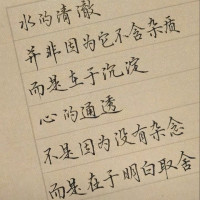 水的清澈
并非因为它不含杂质
而是在于沉淀
心的通透
不是因为没有杂念
而是在于明白取舍